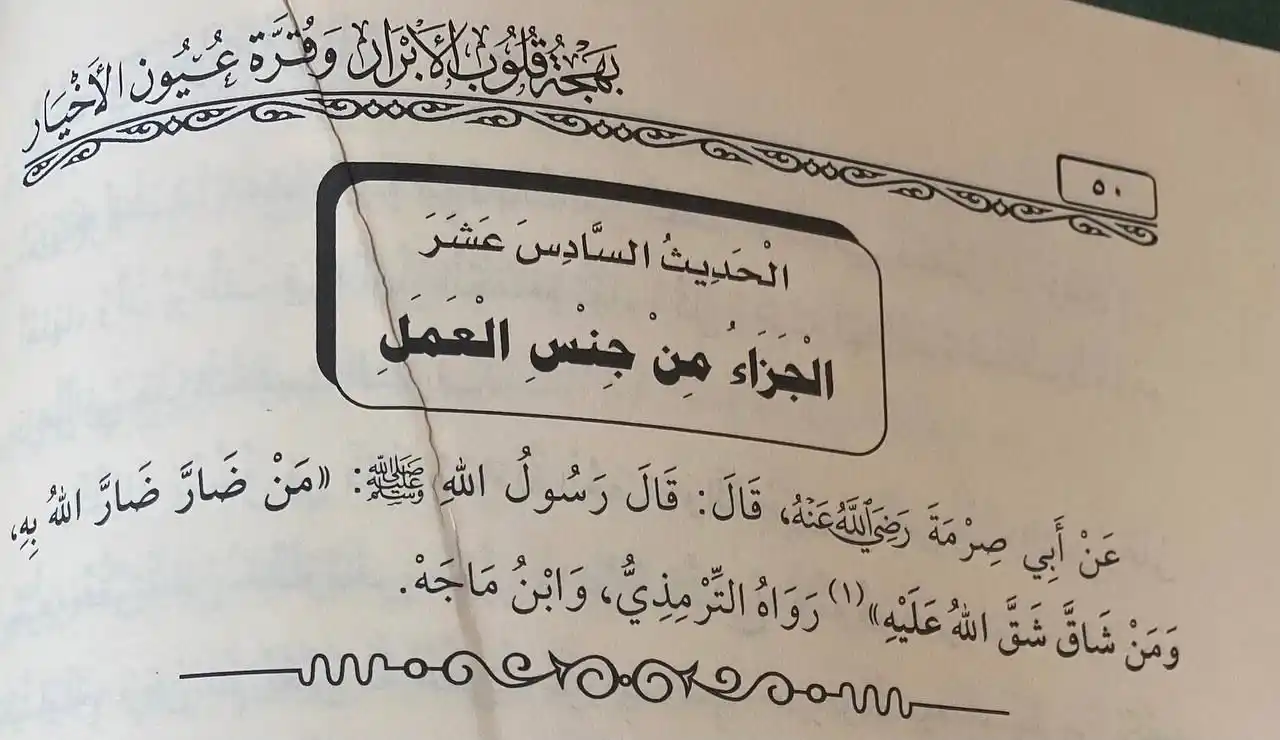 بَهْجَةُ قُلُوبِ الأَبْرَارِ وَقُرَّةُ عُيُونِ الأَخْيَارِ
٥٠
الْحَدِيثُ السَّادِسَ عَشَرَ
الْجَزَاءُ مِنْ جِنْسِ الْعَمَلِ
عَنْ أَبِي صِرْمَةَ رَضِيَ اللَّهُ عَنْهُ، قَالَ: قَالَ رَسُولُ اللهِ ﷺ: «مَنْ ضَارَّ ضَارَّ اللهُ بِهِ،
وَمَنْ شَاقَّ شَقَّ اللهُ عَلَيْهِ»(١) رَوَاهُ التِّرْمِذِيُّ، وَابْنُ مَاجَهْ.